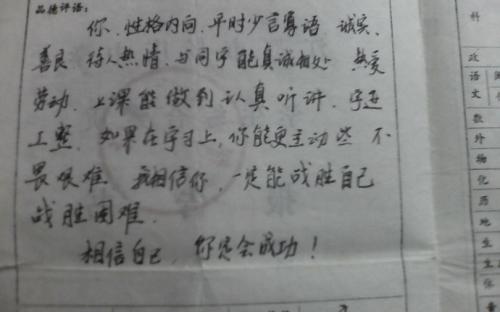 品德评语：
你、性格内向、平时少言寡语 诚实、
善良 待人热情、与同学能真诚相处 热爱
劳动、上课能做到认真听讲、字迹
工整、如果在学习上,你能更主动些 不
畏艰难 我相信你,一定能战胜自己
战胜困难.
相信自己,你定会成功！
科
政
语
文
数
外
物
化
历
地
生
生
体